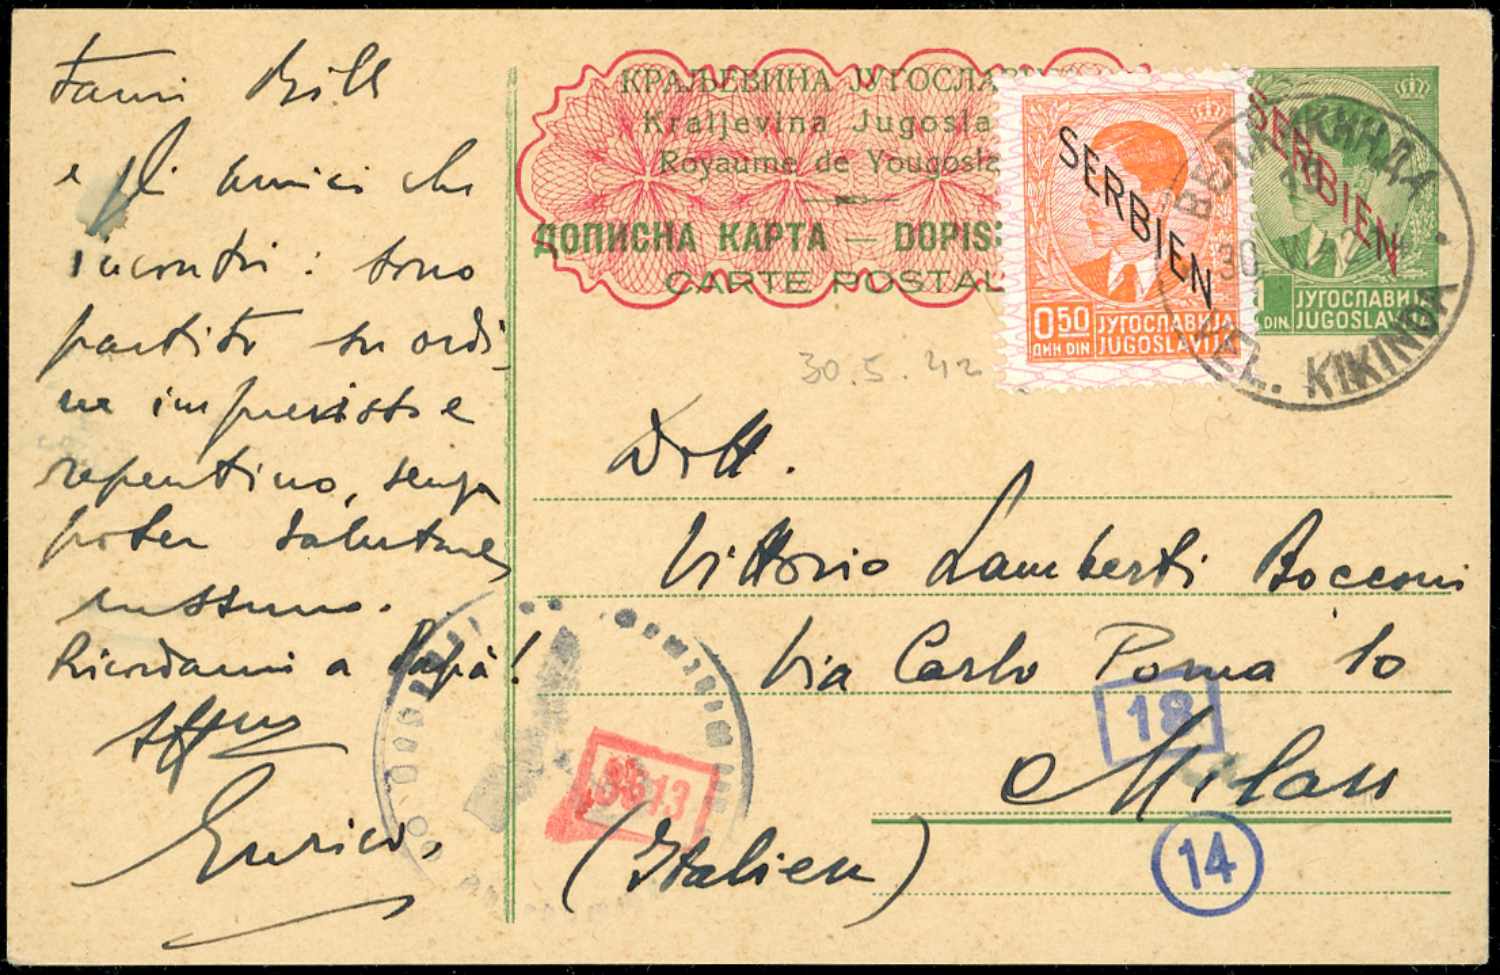 e gli amici che
incontri: sono
partito su ordi,
ne improvviso e
repentino, senza
poter salutare
nessuno.
Ricordami a Papà!
Enrico,
КРАЉЕВИНА ЈУГОСЛА
Kraljevina Jugosla
Royaume de Yougosla
ДОПИСНА КАРТА — DOPIS
CARTE POSTAL
SERBIEN
0.50 ЈУГОСЛАВИЈА
ДИН DIN JUGOSLAVIJA
SERBIEN
1 ЈУГОСЛАВИЈА
DIN. JUGOSLAVIJA
КИКИНДА
VEL. KIKINDA
30.5.42
Dott.
Vittorio Lamberti Bocconi
Via Carlo Poma 10
Milan
(Italien)
18
14